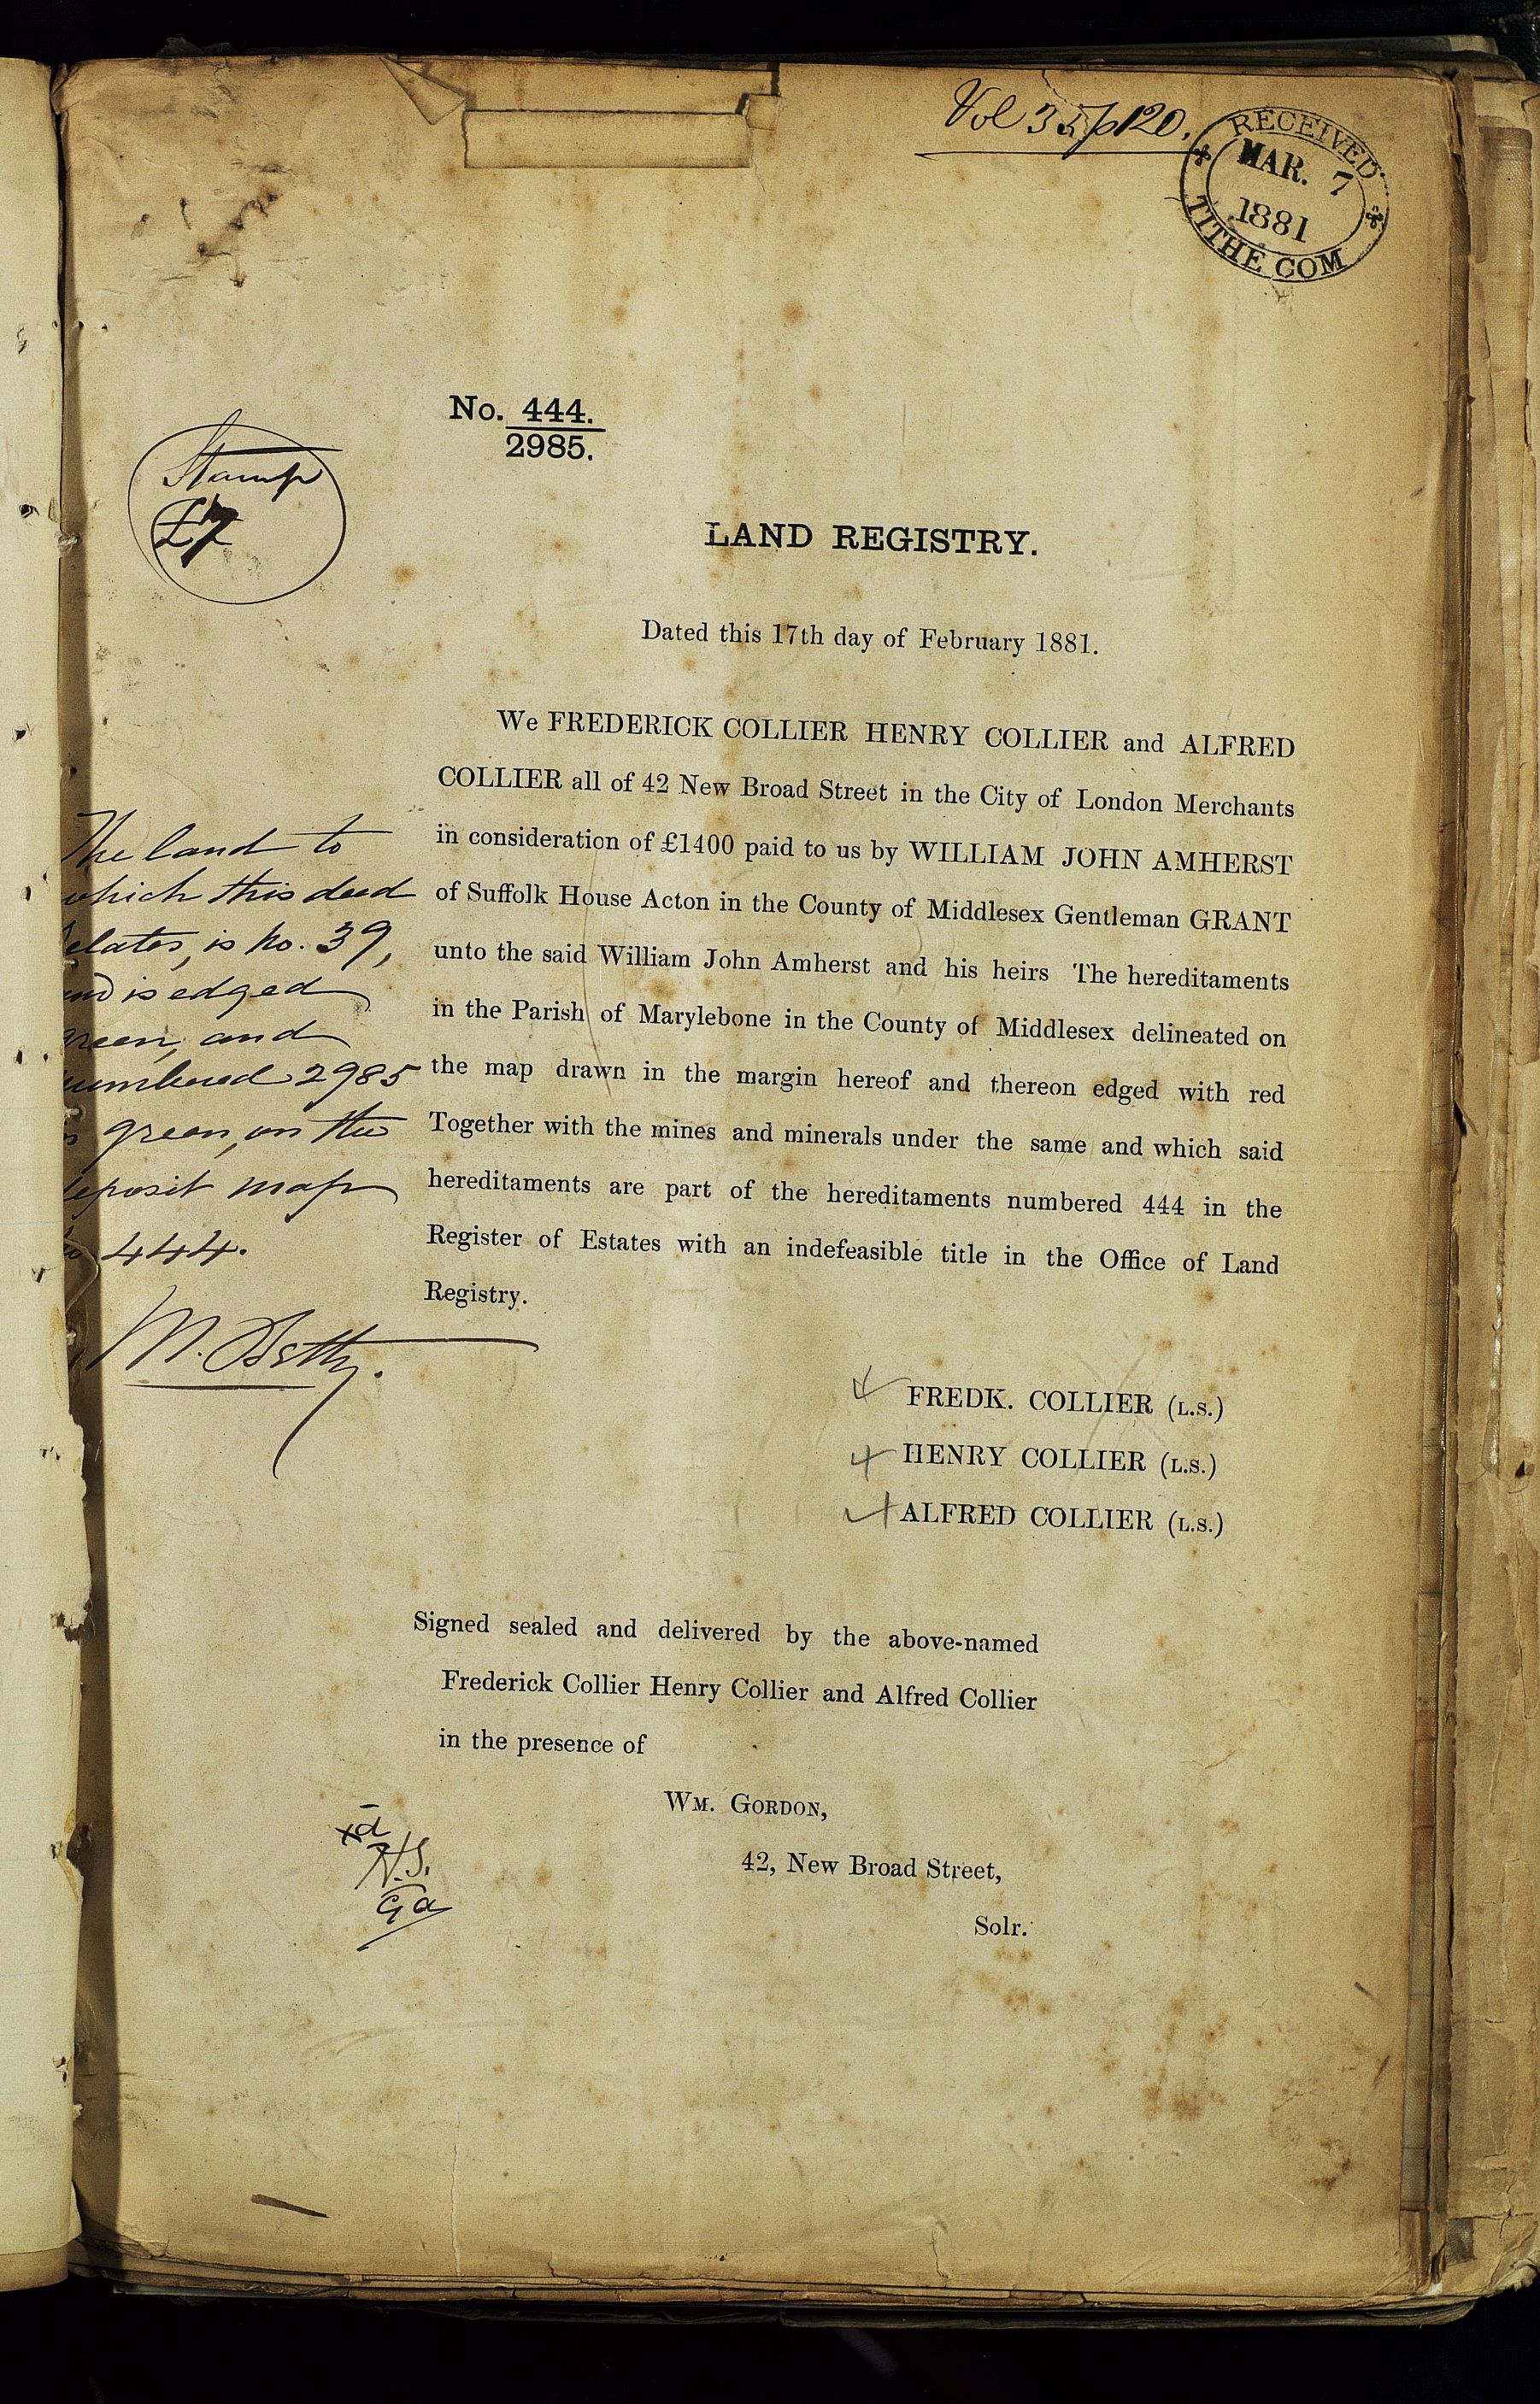 Vol 35 p120.
RECEIVED
MAR. 7
1881
TITHE COM
No. 444.
2985.
Stamp
£7
LAND REGISTRY.
Dated this 17th day of February 1881.
We FREDERICK COLLIER HENRY COLLIER and ALFRED
COLLIER all of 42 New Broad Street in the City of London Merchants
in consideration of £1400 paid to us by WILLIAM JOHN AMHERST
of Suffolk House Acton in the County of Middlesex Gentleman GRANT
unto the said William John Amherst and his heirs The hereditaments
in the Parish of Marylebone in the County of Middlesex delineated on
the map drawn in the margin hereof and thereon edged with red
Together with the mines and minerals under the same and which said
hereditaments are part of the hereditaments numbered 444 in the
Register of Estates with an indefeasible title in the Office of Land
Registry.
The land to
which this deed
relates, is No. 39,
and is edged
green, and
numbered 2985
green, on the
deposit map
444.
FREDK. COLLIER (L.S.)
HENRY COLLIER (L.S.)
ALFRED COLLIER (L.S.)
Signed sealed and delivered by the above-named
Frederick Collier Henry Collier and Alfred Collier
in the presence of
WM. GORDON,
42, New Broad Street,
Solr.